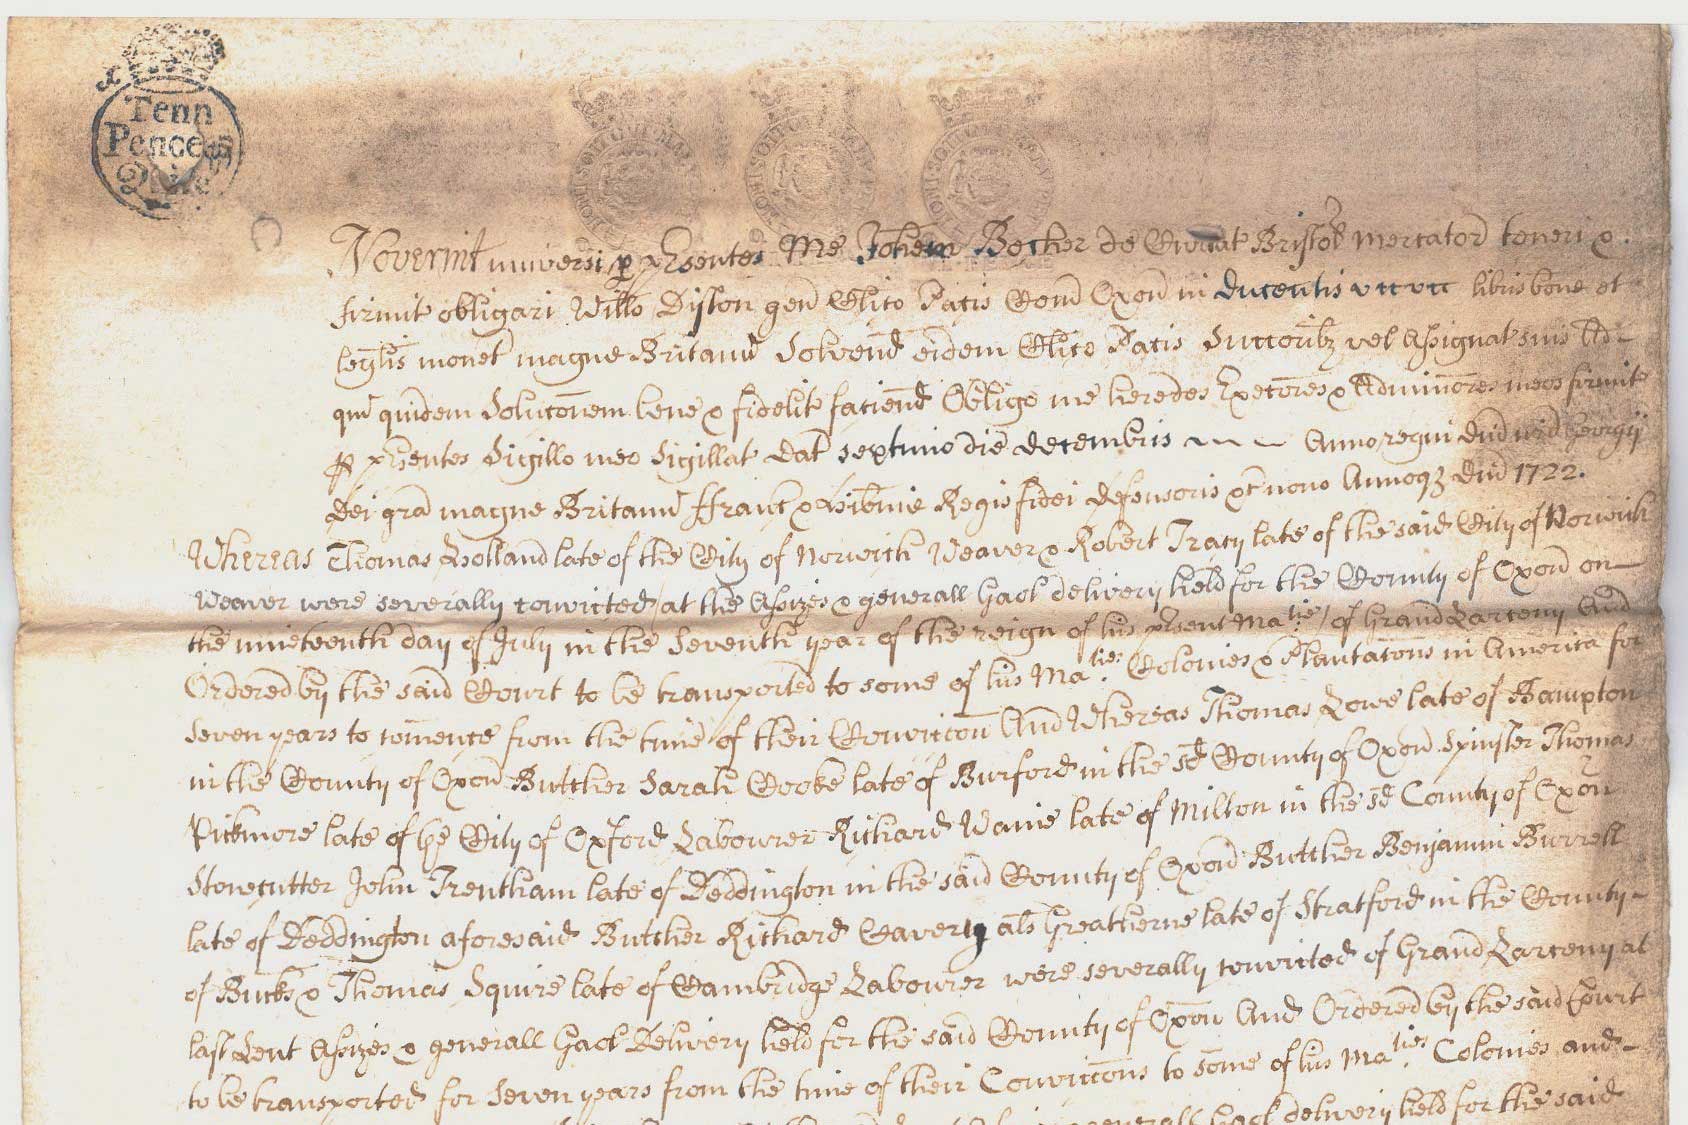 Tenn
Pence
Quire
HONI SOIT QUI MAL
HONI SOIT QUI MAL
HONI SOIT QUI MAL
Noverint universi p̲ p̲sentes Me Johem Becher de Civitat Bristol mercator teneri &
firmit obligari Willo Dyston gen̄ Clico Pacis Com̄ Oxon̄ in ducentis libris bone et
legalis monet magne Britann̄ Solvend̄ eidem Clico Pacis Succoribz vel Assignat suis Ad
qm̄ quidem Soluc̄onem bene & fidelit faciend̄ Obligo me heredes Exec̄ores & Admin̄ores meos firmit
p̲ p̲sentes Sigillo meo Sigillat Dat septimo die decembris Anno regni Dni nr̄i Georgij
Dei gra magne Britann̄ ffranc̄ & Hib̄nie Regis fidei defensoris &c nono Annoqz Dni 1722.
Whereas Thomas Holland late of the City of Norwich Weaver & Robert Tracy late of the said City of Norwich
Weaver were severally convicted at the Assizes & generall Gaol delivery held for the County of Oxon̄ on
the nineteenth day of July in the Seventh year of the reign of his p̲sent Ma:ties of Grand Larceny And
Ordered by the said Court to be transported to some of his Ma:ties Colonies & Plantac̄ons in America for
Seven years to com̄ence from the time of their Convicc̄on And Whereas Thomas Lowe late of Bampton
in the County of Oxon̄ Butcher Sarah Cooke late of Burford in the sd County of Oxon̄ Spinster Thomas
Pickmore late of ye City of Oxford Labourer Richard Wanie late of Milton in the sd County of Oxon̄
Stonecutter John Trentham late of Deddington in the said County of Oxon̄ Butcher Benjamin Burrell
late of Deddington aforesaid Butcher Richard Caverly als Greatherne late of Stratford in the County
of Bucks & Thomas Squire late of Cambridge Labourer were severally convicted of Grand Larceny at
last Lent Assizes & generall Gaol Delivery held for the said County of Oxon̄ And Ordered by the said Court
to be transported for Seven years from the time of their Convicc̄ons to some of his Ma:ties Colonies and
generall Gaol delivery held for the said